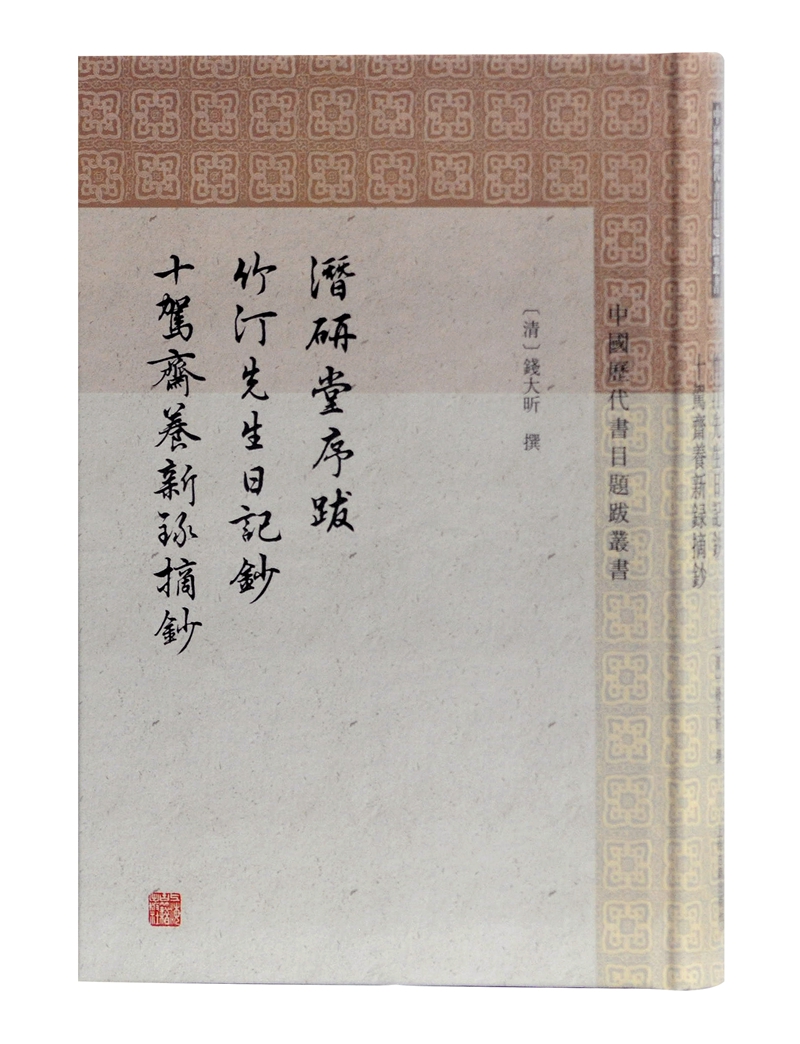 中國歷代書目題跋叢書
〔清〕錢大昕 撰
潛研堂序跋
竹汀先生日記鈔
十駕齋養新錄摘鈔
竹汀先生日記鈔
十駕齋養新録摘鈔
〔清〕錢大昕 撰